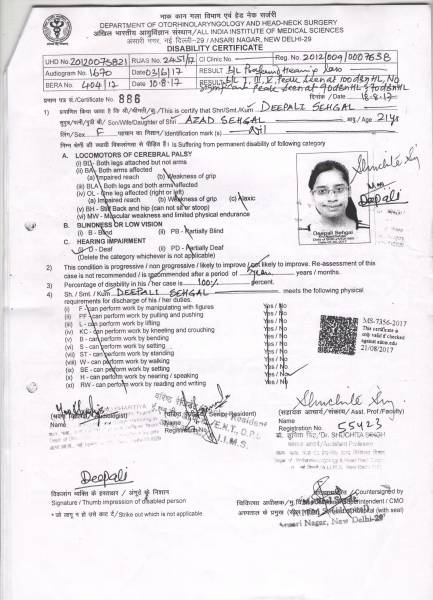 नाक कान गला विभाग एवं हेड नेक सर्जरी
DEPARTMENT OF OTORHINOLARYNGOLOGY AND HEAD-NECK SURGERY
अखिल भारतीय आयुर्विज्ञान संस्थान / ALL INDIA INSTITUTE OF MEDICAL SCIENCES
अंसारी नगर, नई दिल्ली–29 / ANSARI NAGAR, NEW DELHI-29
DISABILITY CERTIFICATE
UHD No. 20120075821 RUAS No. 2451/17 CI Clinic No. Reg. No. 2012/009/0007638
Audiogram No. 1670 Date 03/6/17 RESULT B/L Profound Hearing loss
BERA No. 404/17 Date 10.8.17 RESULT
प्रमाण पत्र सं./Certificate No. 886 दिनांक / Date 18-8-17
1) प्रमाणित किया जाता है कि श्री/श्रीमती/कु. / This is certify that Shri/Smt./Kum DEEPALI SEHGAL
सुपुत्र/पत्नी/पुत्री श्री/Son/Wife/Daughter of Shri AZAD SEHGAL आयु / Age 21 yrs
लिंग/Sex F पहचान का निशान/ Identification mark (s) Nil
निम्न श्रेणी की स्थायी विकलांगता से पीड़ित है। Is Suffering from permanent disability of following category
A. LOCOMOTORS OF CEREBRAL PALSY
i) BD - Both legs attached but not arms
ii) BA - Both arms affected
(a) Impaired reach (b) Weakness of grip
iii) BLA - Both legs and both arms affected
iv) OL - One leg affected (right or left)
(a) Impaired reach (b) Weakness of grip (c) Ataxic
v) BH - Stiff Back and hip (can not sit or stoop)
vi) MW - Muscular weakness and limited physical endurance
B. BLINDNESS OR LOW VISION
i) B - Blind ii) PB - Partially Blind
C. HEARING IMPAIRMENT
i) D - Deaf ii) PD - Partially Deaf
(Delete the category whichever is not applicable)
Deepali Sehgal
Deepali
2) This condition is progressive / non progressive / likely to improve / not likely to improve. Re-assessment of this
case is not recommended / is recommended after a period of 5 year years / months.
3) Percentage of disability in his / her case is 100% percent.
4) Sh. / Smt. / Kum DEEPALI SEHGAL meets the following physical
requirements for discharge of his / her duties.
i) F - can perform work by manipulating with figures Yes / No
ii) PF - can perform work by pulling and pushing Yes / No
iii) L - can perform work by lifting Yes / No
iv) KC - can perform work by kneeling and crouching Yes / No
v) B - can perform work by bending Yes / No
vi) S - can perform work by setting Yes / No
vii) ST - can perform work by standing Yes / No
viii) W - can perform work by walking Yes / No
ix) SE - can perform work by setting Yes / No
x) H - can perform work by nearing / speaking Yes / No
xi) RW - can perform work by reading and writing Yes / No
MS-7356-2017
This certificate is
only valid if checked
against aiims.edu
21/08/2017
Audiologist
Name
(Senior Resident)
Name
E.N.T. D.P.t.
A.I.I.M.S.
(सहायक आचार्य/संकाय/ Asst. Prof./Faculty)
Name
Registration No. 55423
डॉ. शुचिता सिंह/Dr. SHUCHITA SINGH
Deepali
विकलांग व्यक्ति के हस्ताक्षर / अंगूठे के निशान
Signature / Thumb impression of disabled person
* जो लागू न हो उसे काट दें / Strike out which is not applicable.
Countersigned by
Superintendent / CMO
(with seal)
Ansari Nagar, New Delhi-29